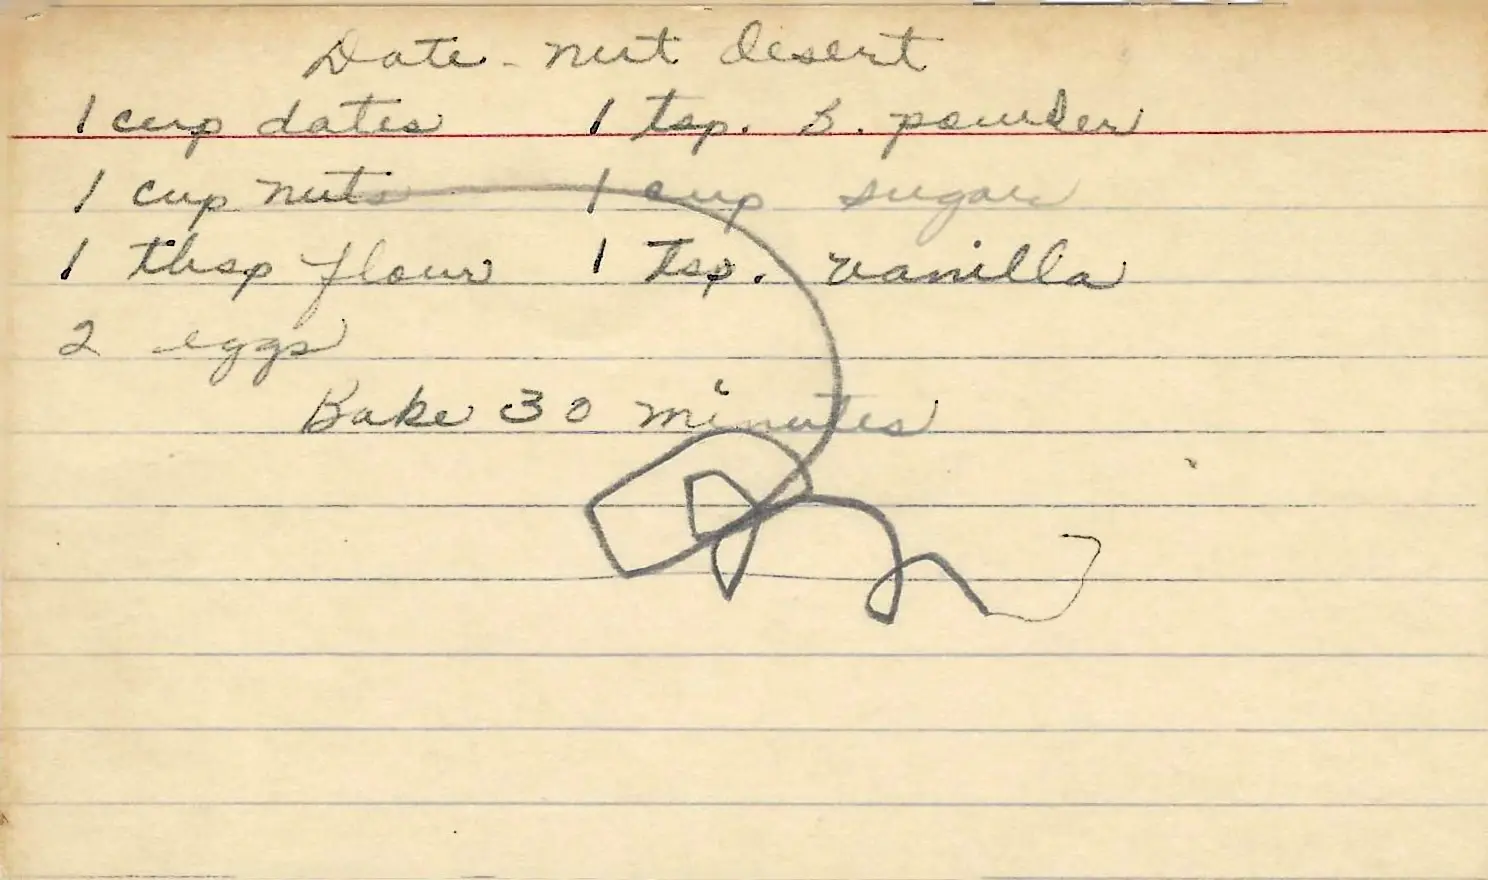 Date - nut desert
1 cup dates 1 tsp. B. powder
1 cup nuts 1 cup sugar
1 tbsp flour 1 tsp. vanilla
2 eggs
Bake 30 minutes